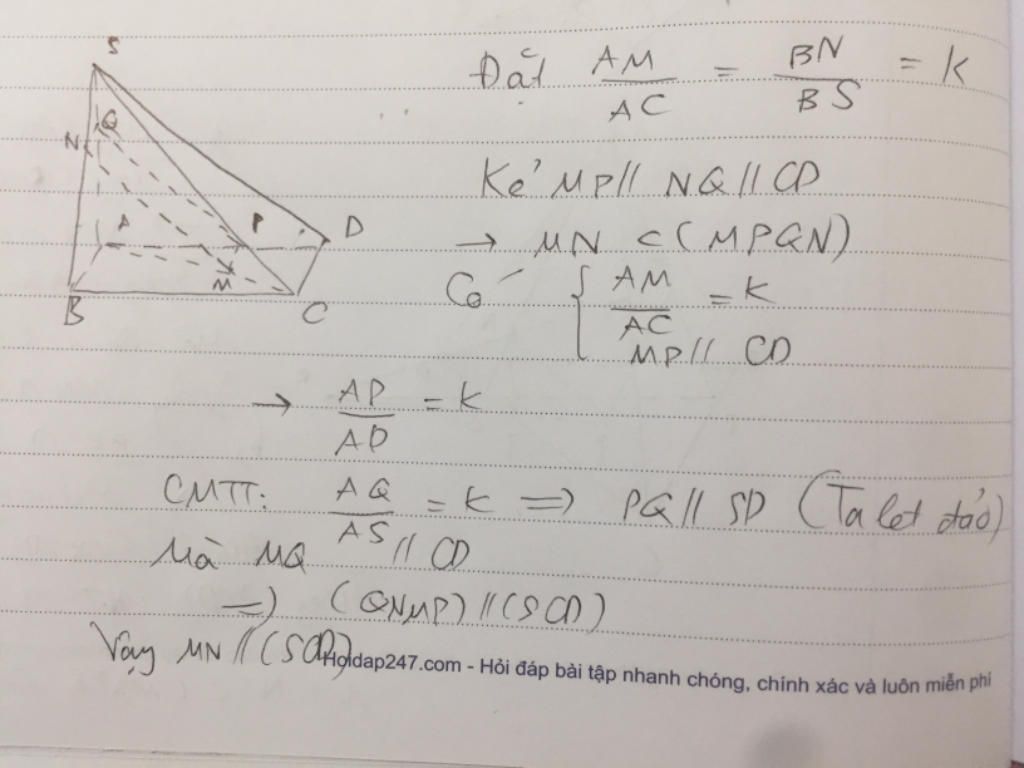 S
N
Q
A
P
D
M
B
C
Đặt AM/AC = BN/BS = k
Kẻ MP // NQ // CD
→ MN ⊂ (MPQN)
Có { AM/AC = k
MP // CD
→ AP/AD = k
CMTT: AQ/AS = k => PQ // SD (Ta let đảo)
Mà MQ // CD
=> (QNMP) // (SCD)
Vậy MN // (SCD)
Hoidap247.com - Hỏi đáp bài tập nhanh chóng, chính xác và luôn miễn phí